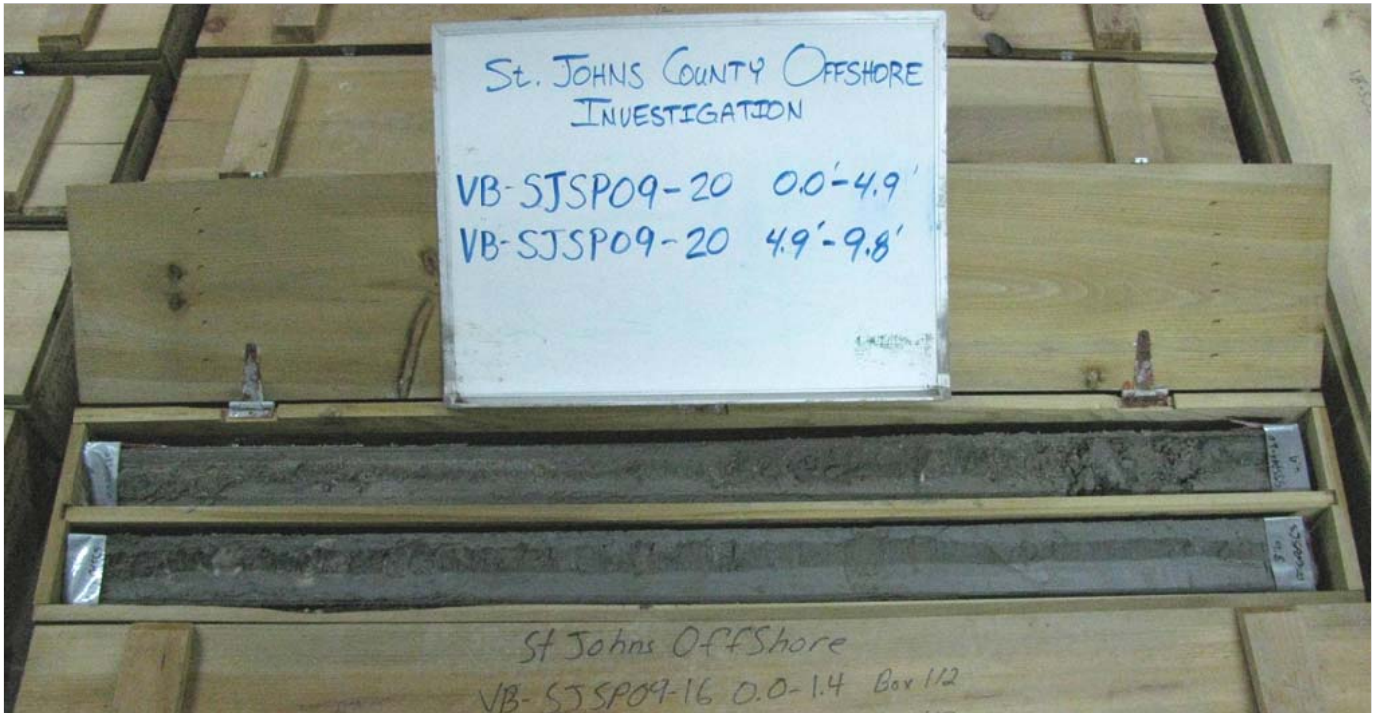 St. JOHNS COUNTY OFFSHORE
INVESTIGATION
VB-SJSP09-20 0.0'-4.9'
VB-SJSP09-20 4.9'-9.8'
St Johns OffShore
VB-SJSP09-16 0.0-1.4 Box 1/2